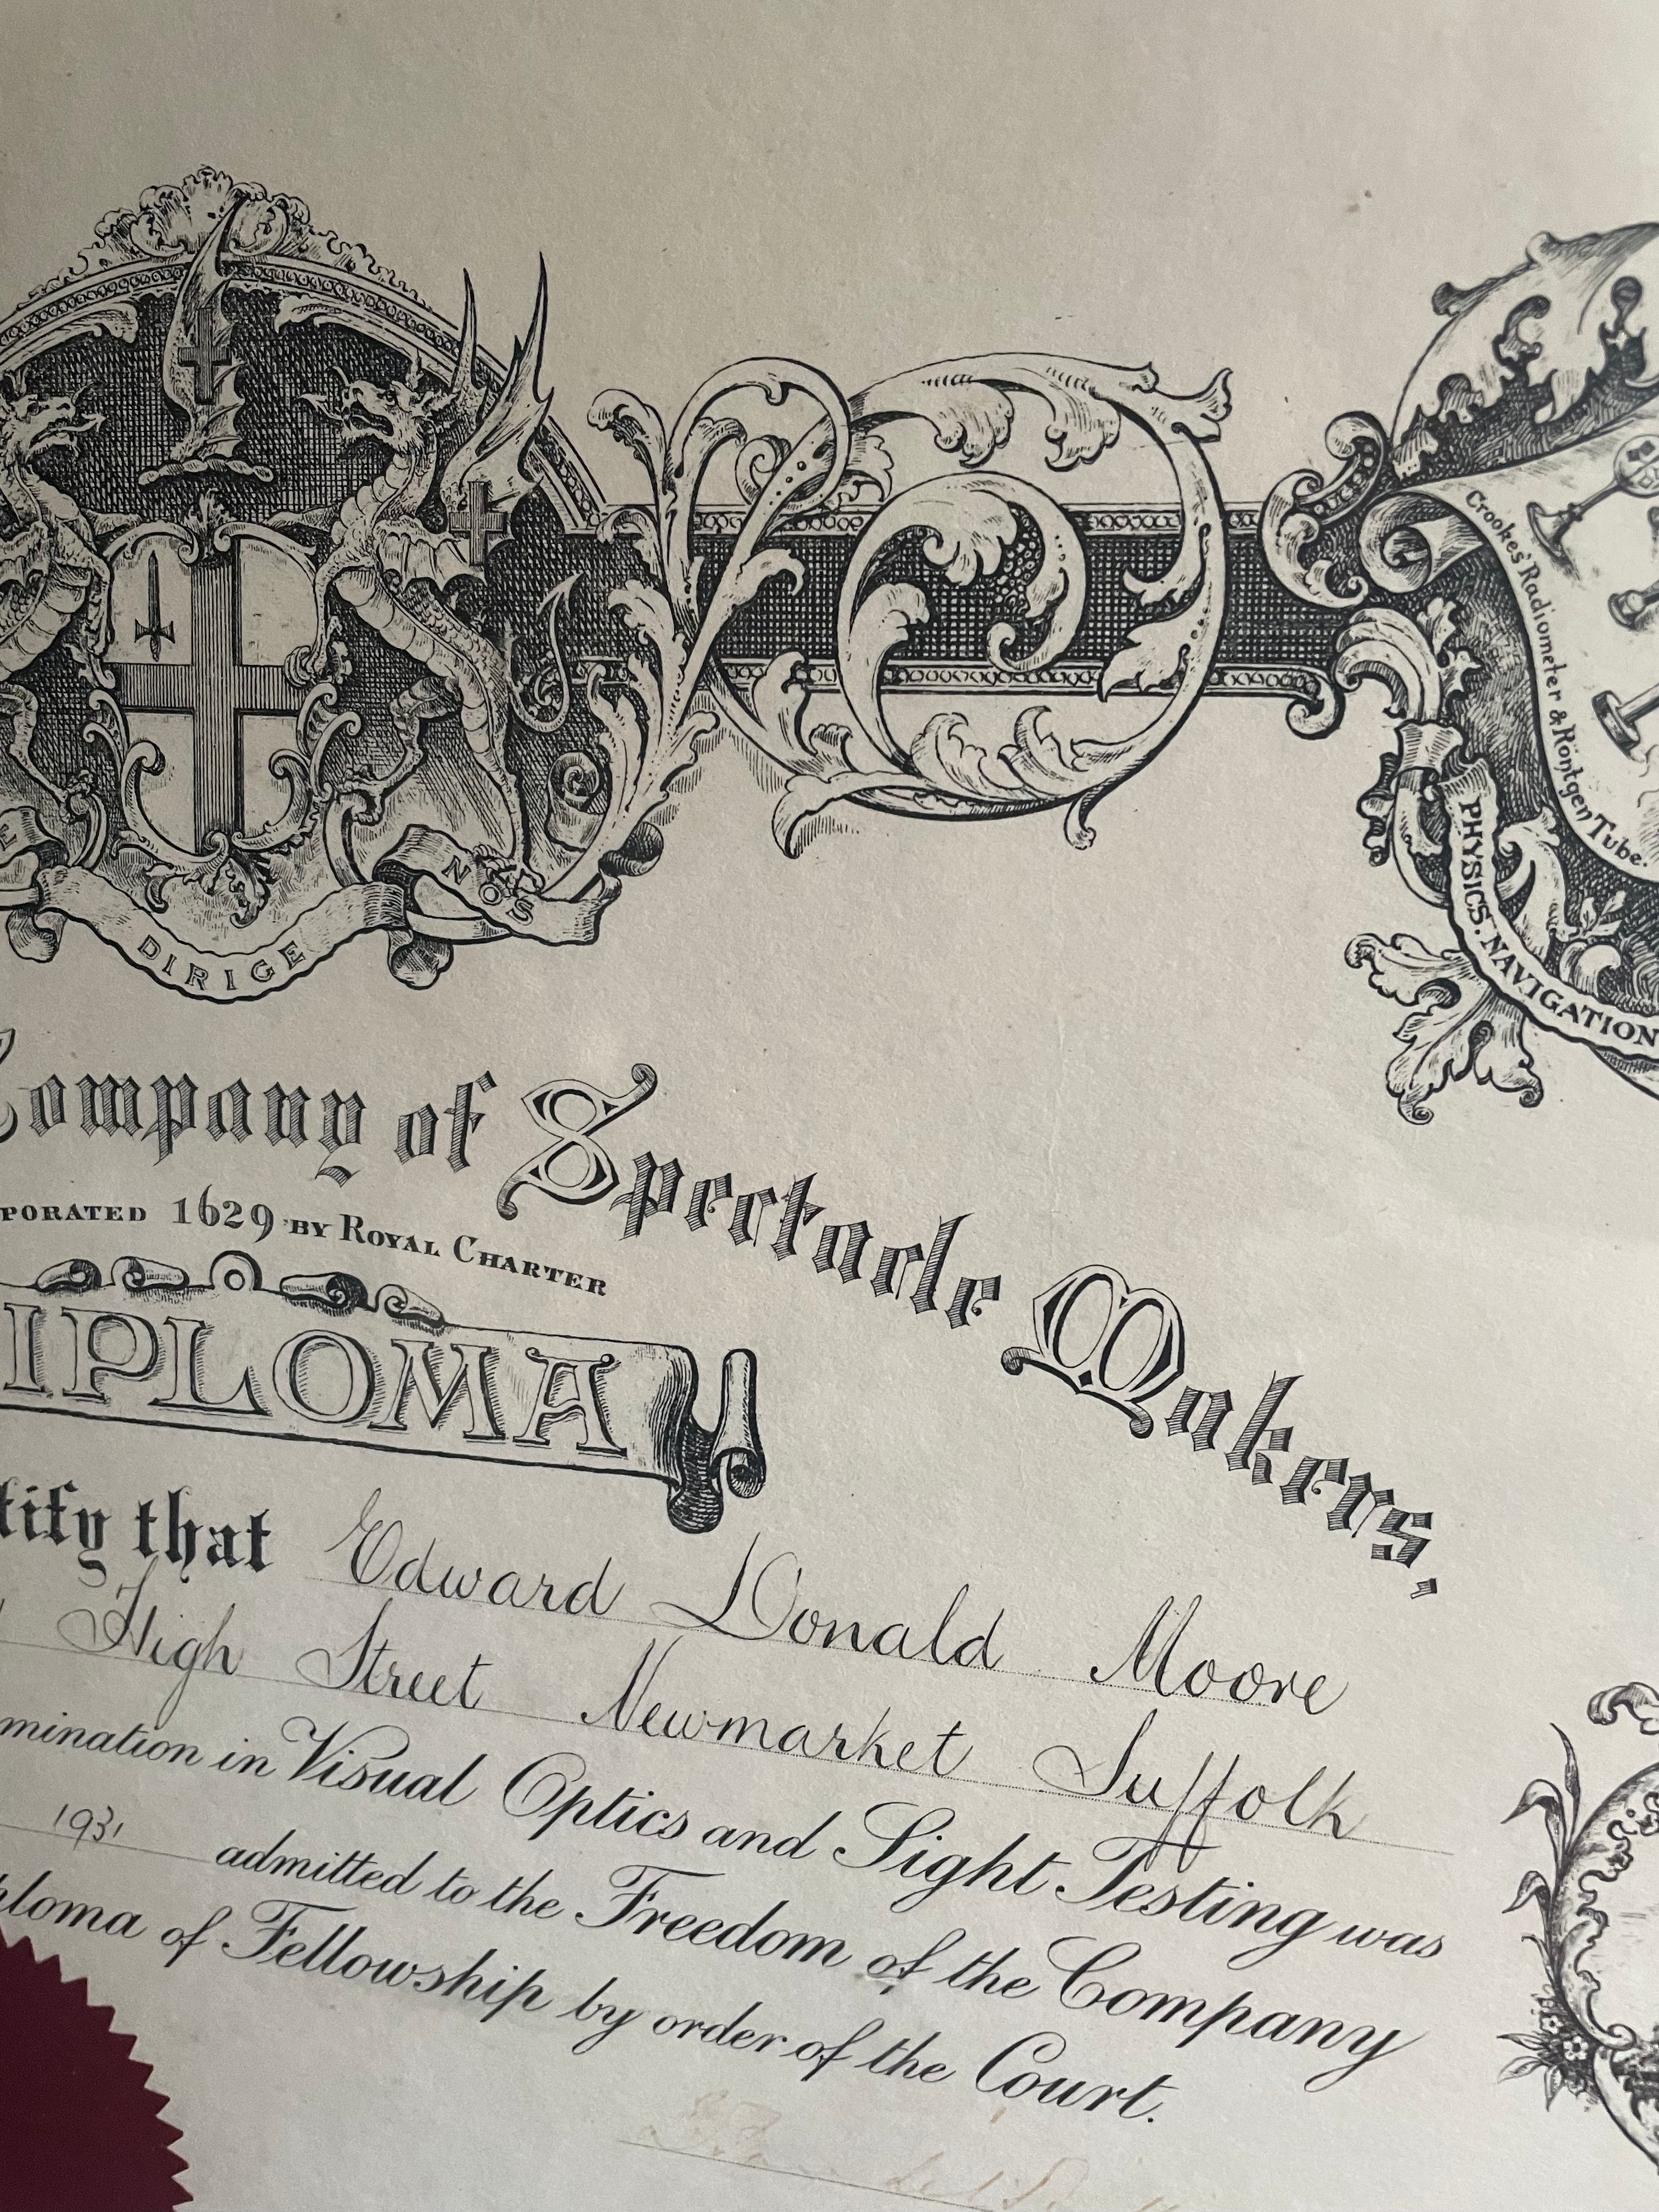 E DIRIGE NOS
Crookes' Radiometer & Röntgen Tube.
PHYSICS. NAVIGATION
Company of Spectacle Makers.
PORATED 1629 BY ROYAL CHARTER
IPLOMA
tify that Edward Donald Moore
High Street Newmarket Suffolk
mination in Visual Optics and Sight Testing was
1931 admitted to the Freedom of the Company
ploma of Fellowship by order of the Court.